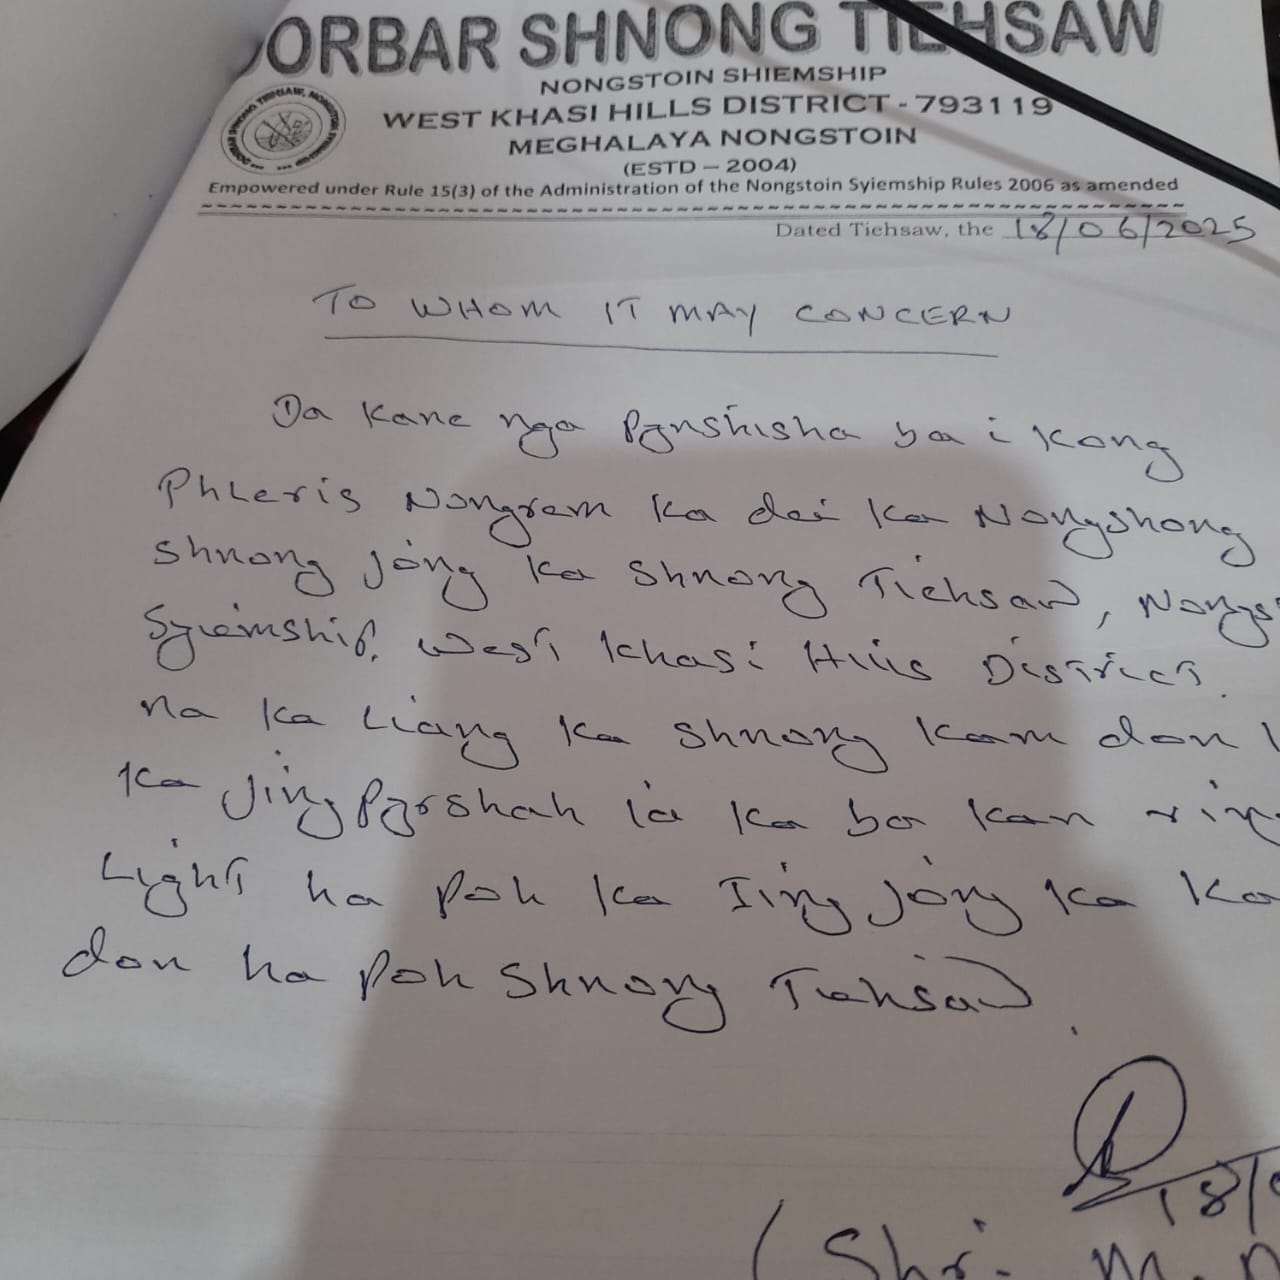 DORBAR SHNONG TIEHSAW
NONGSTOIN SHIEMSHIP
WEST KHASI HILLS DISTRICT - 793119
MEGHALAYA NONGSTOIN
(ESTD – 2004)
Empowered under Rule 15(3) of the Administration of the Nongstoin Syiemship Rules 2006 as amended
Dated Tiehsaw, the 18/06/2025
TO WHOM IT MAY CONCERN
Da Kane nga Pynshisha ba i Kong
Phleris Nongrem Ka dei Ka Nongshong
Shnong jong Ka Shnong Tiehsaw,
Syiemship, West Khasi Hills District.
na Ka Liang Ka Shnong Kam don
Ka Jingpyrshah ia Ka ba Kan
Light ha poh Ka Iing jong Ka
don ha poh Shnong Tiehsaw.
(Shri. M.